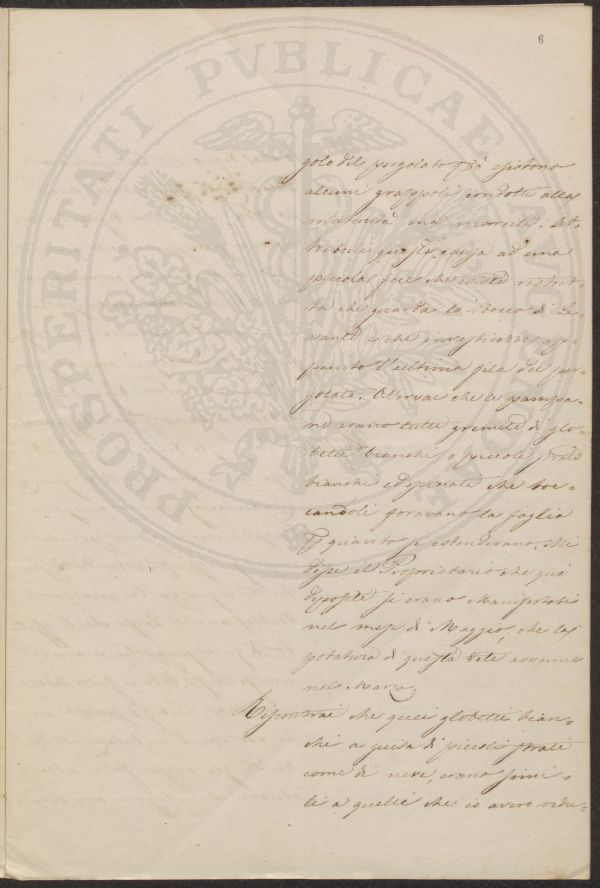 6
PROSPERITATI PVBLICAE
golo del pergolato però esistono
alcuni grappoli condotti alla
maturità ma morsecti. At-
tribuii questa causa ad una
piccola foce che esiste
che guarda lo sbocco di Le-
vante e che investirebbe ap-
punto l'ultima fila del per-
golato. Osservai che le pampa-
ne erano tutte gremite di glo-
betti bianchi o piccoli strati
bianchi che toc-
candoli foravano la foglia
per quanto si estendevano. Mi
disse il Proprietario che que'
depositi si erano Manifestati
nel mese di Maggio, che la
potatura di questa Vite avvenne
nel Marzo.
Riscontrai che quei globetti bian-
chi a guisa di piccoli strati
come di neve, erano simi-
li a quelli che io avevo vedu-